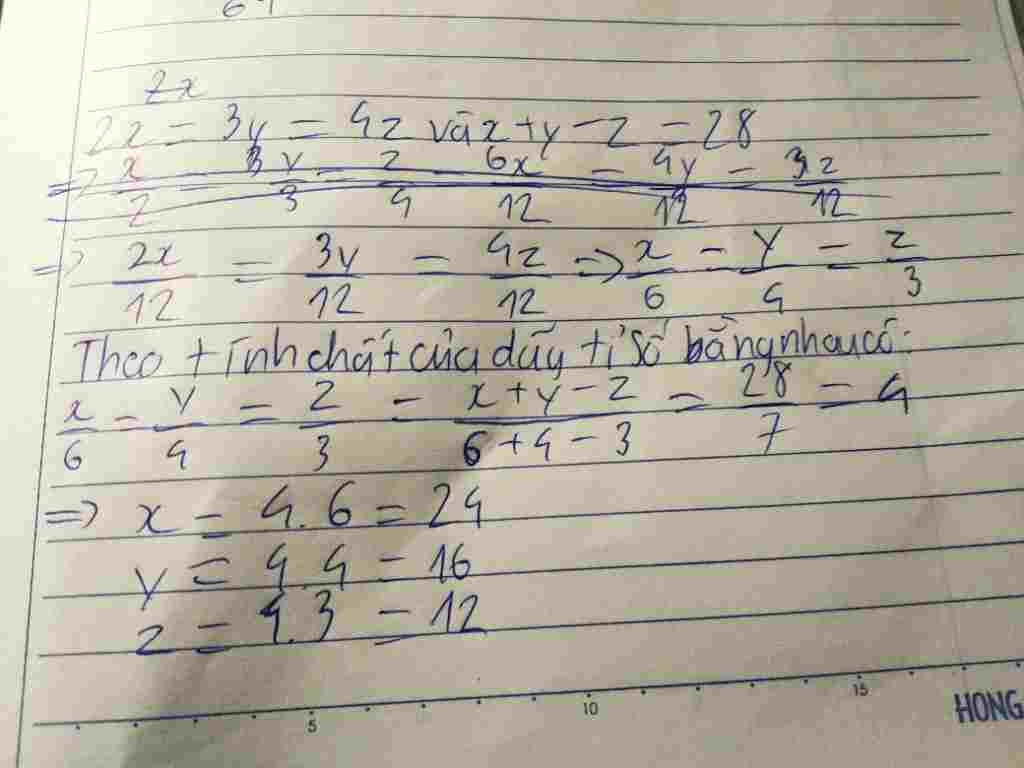 2x
2x = 3y = 4z và x + y - z = 28
=> x/2 = y/3 = z/4 = 6x/12 = 4y/12 = 3z/12
=> 2x/12 = 3y/12 = 4z/12 => x/6 = y/4 = z/3
Theo tính chất của dãy tỉ số bằng nhau có:
x/6 = y/4 = z/3 = x+y-z/6+4-3 = 28/7 = 4
=> x = 4.6 = 24
y = 4.4 = 16
z = 4.3 = 12
5 10 15
HONG